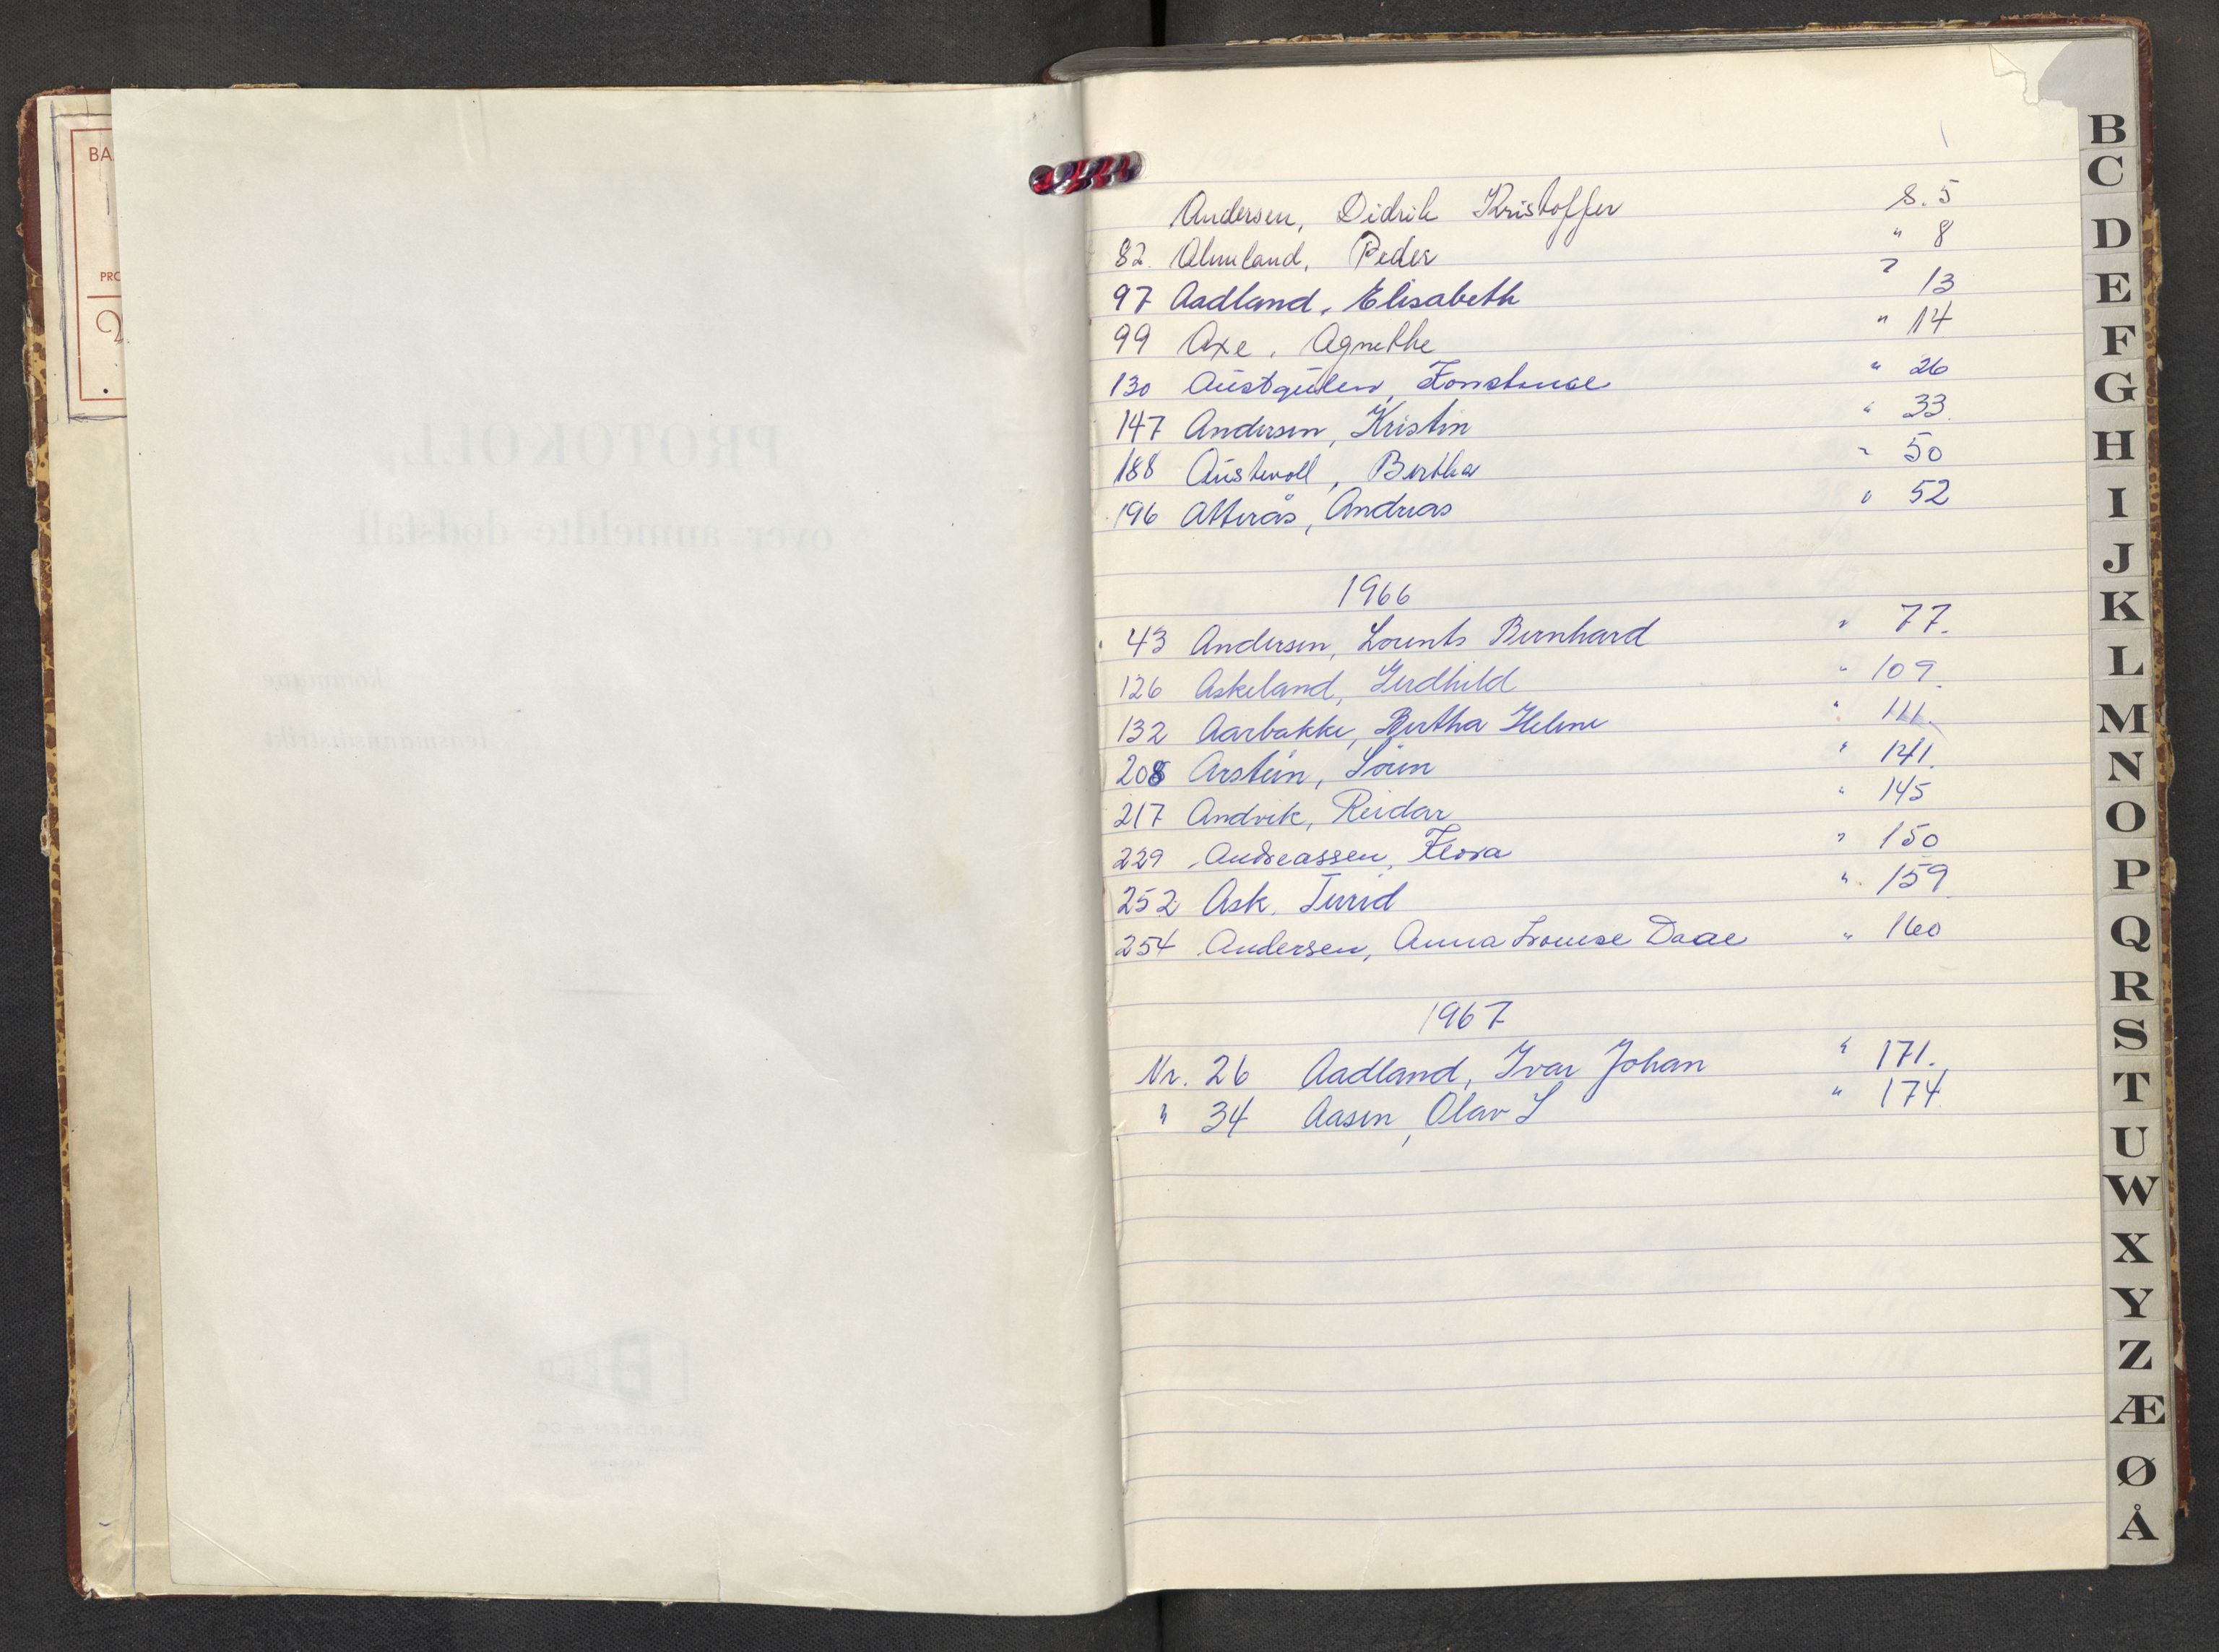 BA
PRO
PROTOKOLL
over anmeldte dødsfall
kommune
lensmannsdistrikt
Andersen, Didrik Kristoffer S. 5
82. Almeland, Peder " 8
97 Aadland, Elisabeth " 13
99 Axe, Agnethe " 14
130 Austgulen, Konstanse " 26
147 Andersen, Kristin " 33.
188 Austevoll, Bertha " 50
196 Atterås, Andreas " 52
1966
43 Andersen, Lorents Bernhard " 77.
126 Askeland, Gerdhild " 109.
132 Aarbakke, Bertha Helene " 111.
208 Arstein, Søren " 141.
217 Andvik, Reidar " 145
229 Andreassen, Flora " 150
252 Ask, Turid " 159.
254 Andersen, Anna Lovise Daae " 160
1967
Nr. 26 Aadland, Ivar Johan " 171.
" 34 Aasen, Olav L " 174
B
C
D
E
F
G
H
I
J
K
L
M
N
O
P
Q
R
S
T
U
W
X
Y
Z
Æ
Ø
Å